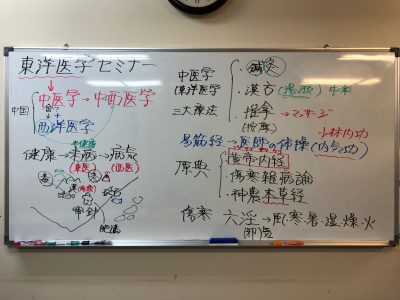 東洋医学セミナー
中医学→中西医学
中国
西洋医学
未健康
健康→未病→病気
(東医)
(西医)
中医学
(東洋医学
三大療法
・鍼灸
・漢方(湯液)中薬
・推拿→マッサージ
(按摩)
少林内功
易筋経→医師の体操(内功)
原典
・黄帝内経
・傷寒雑病論
・神農本草経
傷寒 六淫→風・寒・暑・湿・燥・火
(邪)気